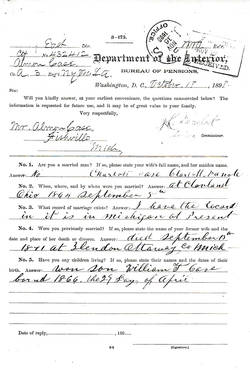 3-173.
Department of the Interior,
BUREAU OF PENSIONS,
Washington, D. C., October 15, 1898
Co. A, 3 N.Y.
SIR:
Will you kindly answer, at your earliest convenience, the questions enumerated below? The
information is requested for future use, and it may be of great value to your family.
Very respectfully,
Commissioner.
Mr. Almon Case
Mich
No. 1. Are you a married man? If so, please state your wife's full name, and her maiden name.
Answer: No Charlott Case
No. 2. When, where, and by whom were you married? Answer: at Cleveland
Ohio 1864 September 5th
No. 3. What record of marriage exists? Answer: I have the Record
in it is in Michigan at Present
No. 4. Were you previously married? If so, please state the name of your former wife and the
date and place of her death or divorce. Answer: died September
at Mich
No. 5. Have you any children living? If so, please state their names and the dates of their
birth. Answer: won son William F Case
born 1866. the 29 Day of April
Date of reply, , 189
(Signature.)